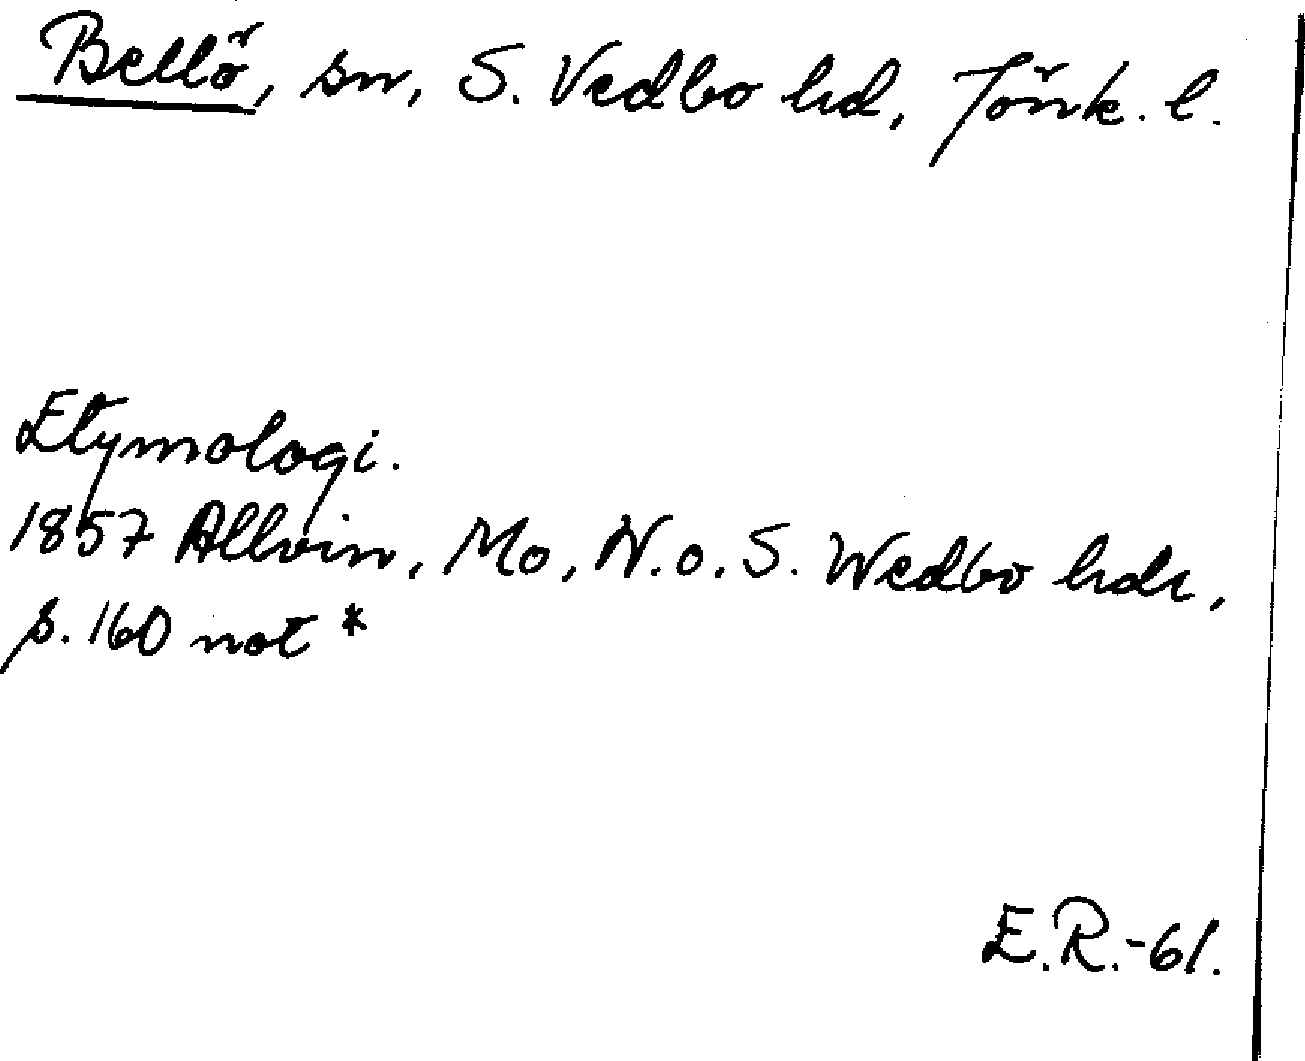 Bellö, sn, S. Vedbo hd, Jönk. l.
Etymologi.
1857 Allvin, Mo, N. o. S. Wedbo hdr,
s. 160 not *
E.R.-61.